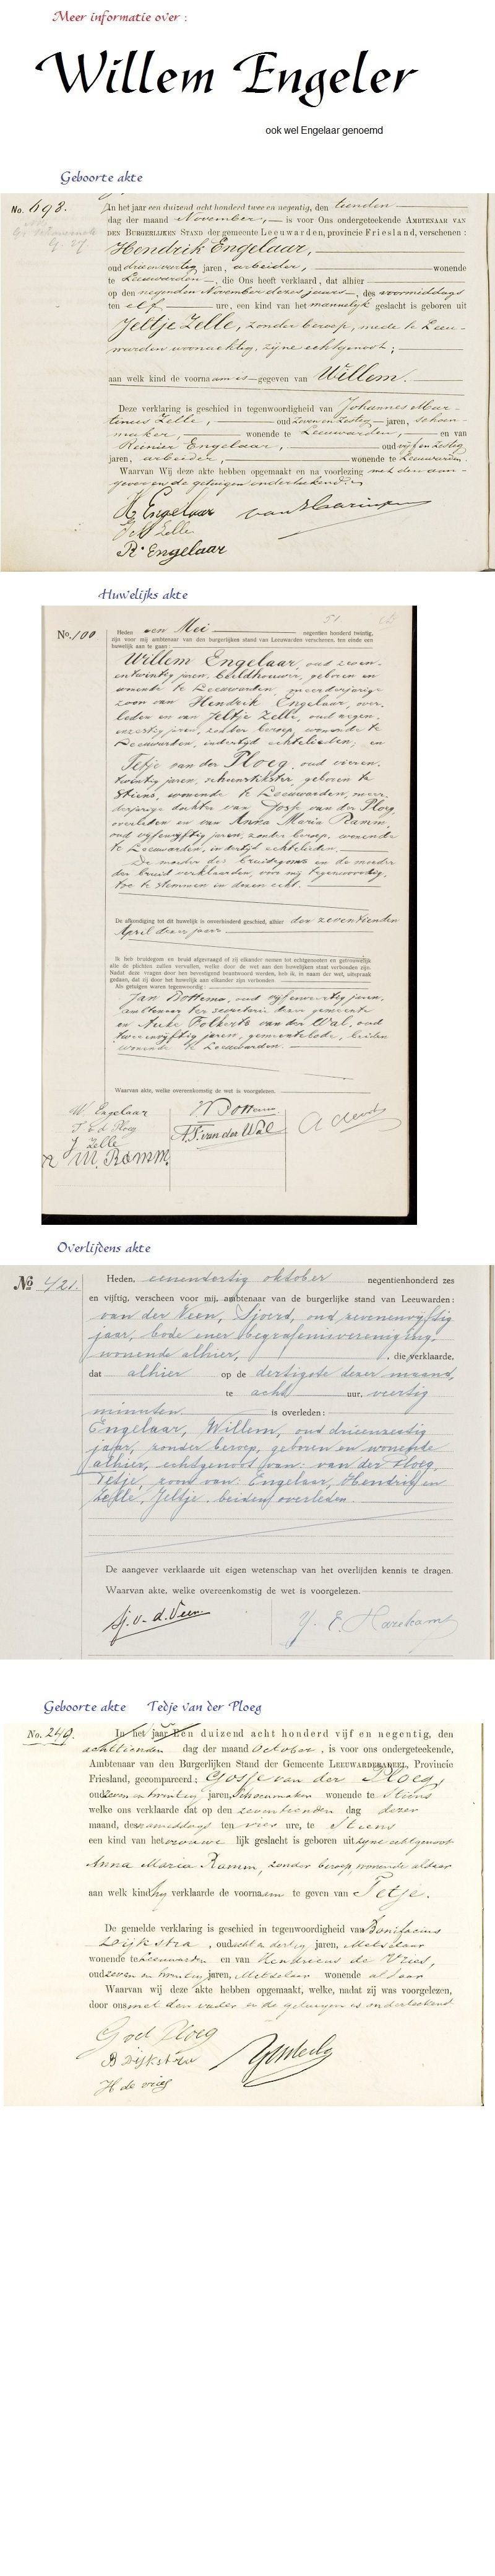 Meer informatie over :
Willem Engeler
ook wel Engelaar genoemd
Geboorte akte
No. 698.
In het jaar een duizend acht honderd twee en negentig, den tienden
dag der maand November, is voor Ons ondergeteekende AMBTENAAR VAN
DEN BURGERLIJKEN STAND der gemeente Leeuwarden, provincie Friesland, verschenen:
Hendrik Engelaar,
oud drie en veertig jaren, arbeider, wonende
te Leeuwarden, die Ons heeft verklaard, dat alhier
op den negenden November dezes jaars, des voormiddags
ten elf ure, een kind van het mannelijk geslacht is geboren uit
Jeltje Zelle, zonder beroep, mede te Leeu-
warden woonachtig, zijne echtgenoot;
aan welk kind de voornaam is gegeven van Willem.
Deze verklaring is geschied in tegenwoordigheid van Johannes Mar-
tinus Zelle, oud zeven en zestig jaren, schoen-
maker, wonende te Leeuwarden, en van
Reinier Engelaar, oud vijf en zestig
jaren, arbeider, wonende te Leeuwarden.
Waarvan Wij deze akte hebben opgemaakt en na voorlezing met den aan-
gever en de getuigen onderteekend.
H Engelaar
Zelle
R. Engelaar
Huwelijks akte
No. 100
Heden een Mei negentien honderd twintig,
zijn voor mij ambtenaar van den burgerlijken stand van Leeuwarden verschenen, ten einde een
huwelijk aan te gaan:
Willem Engelaar, oud zeven-
entwintig jaren, beeldhouwer, geboren en
wonende te Leeuwarden, meerderjarige
zoon van Hendrik Engelaar, over-
leden en van Jeltje Zelle, oud negen-
enzestig jaren, zonder beroep, wonende te
Leeuwarden, indertijd echtelieden; en
Tetje van der Ploeg, oud vieren-
twintig jaren, geboren te
Stiens, wonende te Leeuwarden, meer-
derjarige dochter van Gosse van der Ploeg
overleden en van Anna Maria Ramm,
oud vijfenvijftig jaren, zonder beroep, wonende
te Leeuwarden, indertijd echtelieden.
De moeder des bruidegoms en de moeder
der bruid verklaarden, voor mij tegenwoordig,
toe te stemmen in dezen echt.
De afkondiging tot dit huwelijk is onverhinderd geschied, alhier den zeventienden
April dezer jaars
Ik heb bruidegom en bruid afgevraagd of zij elkander nemen tot echtgenooten en getrouwelijk
alle de plichten zullen vervullen, welke door de wet aan den huwelijken staat verbonden zijn.
Nadat deze vragen door hen bevestigend beantwoord werden, heb ik, in naam der wet, uitspraak
gedaan, dat zij door het huwelijk aan elkander zijn verbonden.
Als getuigen waren tegenwoordig:
Jan Bottema, oud vijfenveertig jaren,
ambtenaar ter secretarie dezer gemeente
en Auke Folkerts van der Wal, oud
tweeenvijftig jaren, gemeentebode, beiden
wonende te Leeuwarden.
Waarvan akte, welke overeenkomstig de wet is voorgelezen.
W Engelaar
T v d Ploeg
J Zelle
M. Ramm.
Bottema
A.F. van der Wal
Overlijdens akte
No 421.
Heden, eenendertig oktober negentienhonderd zes
en vijftig, verscheen voor mij, ambtenaar van de burgerlijke stand van Leeuwarden:
van der Veen, Sjoerd, oud zevenenvijftig
jaar, bode ener begrafenisvereniging,
wonende alhier, die verklaarde,
dat alhier op de dertigste dezer maand,
te acht uur, veertig
minuten is overleden:
Engelaar, Willem, oud drieenzestig
jaar, zonder beroep, geboren en wonende
alhier, echtgenoot van: van der Ploeg,
Tetje, zoon van: Engelaar, Hendrik en
Zelle, Jeltje, beiden overleden.
De aangever verklaarde uit eigen wetenschap van het overlijden kennis te dragen.
Waarvan akte, welke overeenkomstig de wet is voorgelezen.
Sj. v. d. Veen
Geboorte akte Tedje van der Ploeg
No. 249.
In het jaar Een duizend acht honderd vijf en negentig, den
achttienden dag der maand October, is voor ons ondergeteekende,
Ambtenaar van den Burgerlijken Stand der Gemeente LEEUWARDERADEEL, Provincie
Friesland, gecompareerd: Gosse van der Ploeg,
oud zeven en twintig jaren, Schoenmaker wonende te Stiens
welke ons verklaarde dat op den zeventienden dag dezer
maand, des namiddags ten vier ure, te Stiens
een kind van het vrouwelijk geslacht is geboren uit zijne echtgenoot
Anna Maria Ramm, zonder beroep, wonende aldaar
aan welk kind hij verklaarde de voornaam te geven van Tetje.
De gemelde verklaring is geschied in tegenwoordigheid van Bonifacius
Dijkstra, oud acht en dertig jaren, Metselaar
wonende te Leeuwarden en van Hendricus de Vries,
oud zeven en twintig jaren, Metselaar wonende aldaar
Waarvan wij deze akte hebben opgemaakt, welke, nadat zij was voorgelezen,
door ons met den vader en de getuigen is onderteekend
G vd Ploeg
B Dijkstra
H de vries